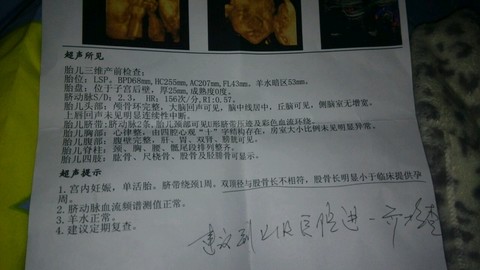 超声所见
胎儿三维产前检查:
胎位: LSP, BPD68mm, HC255mm, AC207mm, FL43mm, 羊水暗区53mm。
胎盘: 位于子宫后壁, 厚25mm, 成熟度0度。
脐动脉S/D: 2.3, HR: 156次/分, RI:0.57。
胎儿头部: 颅骨环完整, 大脑回声可见, 脑中线居中, 丘脑可见, 侧脑室无增宽。
上唇回声未见明显连续性中断。
胎儿脐带: 脐动脉2条, 胎儿颈部可见U形脐带压迹及彩色血流环绕。
胎儿胸部: 心律整, 由四腔心观"十"字结构存在, 房室大小比例未见明显异常。
胎儿腹部: 腹壁完整, 肝、胃、双肾、膀胱可见。
胎儿脊柱: 颈、胸、腰、骶尾段排列整齐。
胎儿四肢: 肱骨、尺桡骨、股骨及胫腓骨可显示。
超声提示
1. 宫内妊娠, 单活胎, 脐带绕颈1周, 双顶径与股骨长不相符, 股骨长明显小于临床提供孕
周。
2. 脐动脉血流频谱测值正常。
3. 羊水正常。
4. 建议定期复查。
建议到 医院进一步检查